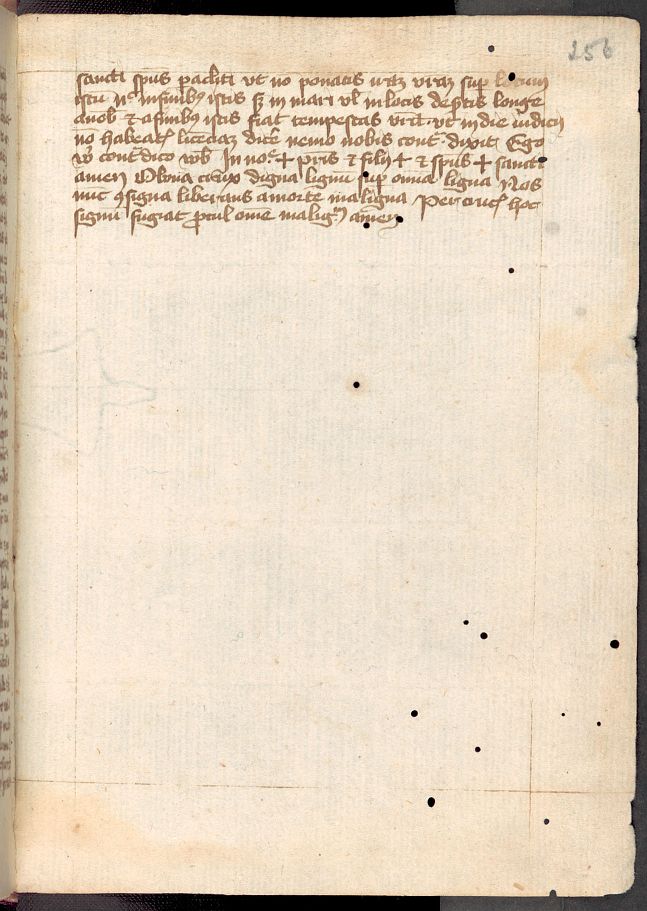 256
sancti spūs pacliti vt nō ponatis irāz vrāz sup locum
istū nͨ in finibꝰ istis sꝫ in mari vl̓ in locis deſtis longe
a nob̄ ⁊ a finibꝰ istis fiat tempestas vrā vt in die iudicij
nō habeatꝭ licēciaz dicē̓ nemo nobis contͣdixit Ego
vō contͣdico vob̄ In noīe ✝ pris̄ ⁊ filij ✝ ⁊ sp̄us ✝ sancti
amen O bona crux digna lignū sup om̄ia ligna Nos
nūc ꝯsigna liberans a morte maligna Per crucꝭ hoc
signū fugiat procul om̄e malignū amen